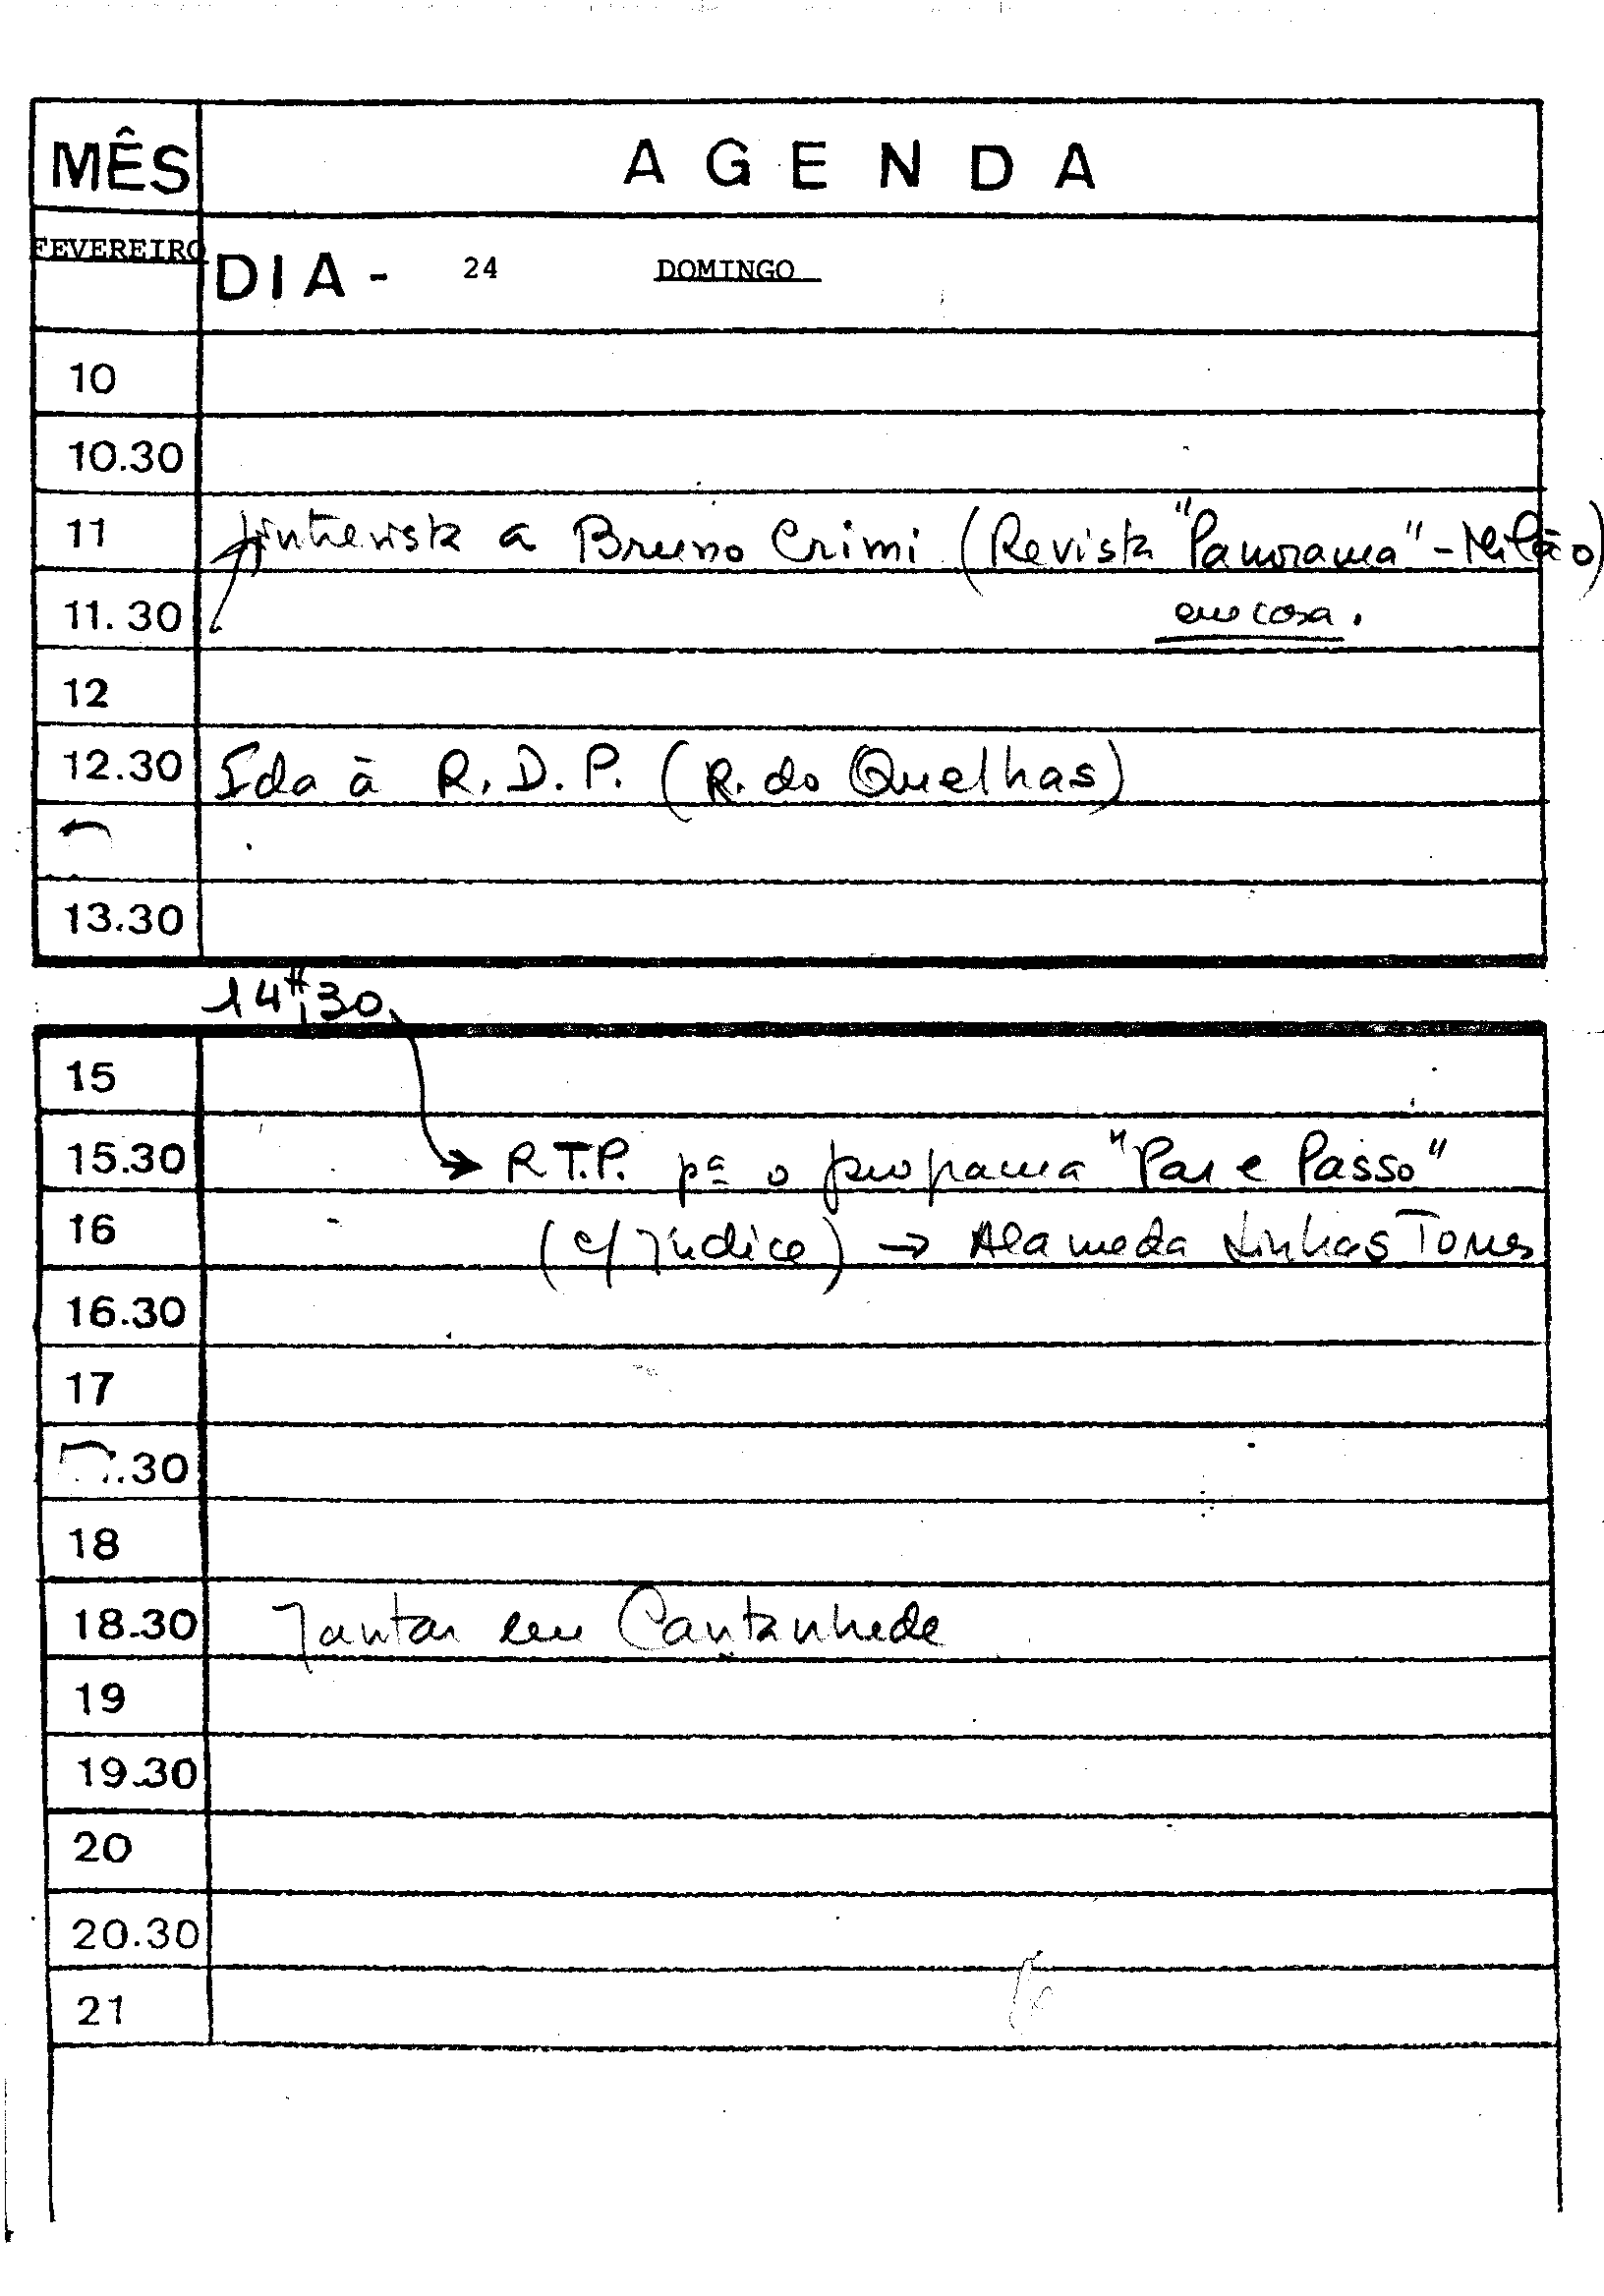 MÊS AGENDA
FEVEREIRO DIA - 24 DOMINGO
10
10.30
11 Entrevista a Bruno Crimi (Revista "Panorama" - Milão)
11.30 em casa.
12
12.30 Ida à R.D.P. (R. do Quelhas)
13.30
14H30
15
15.30 R.T.P. pª o programa "Par e Passo"
16 (c/ Júdice) → Alameda Linhas Torres
16.30
17
.30
18
18.30 Jantar em Cantanhede
19
19.30
20
20.30
21